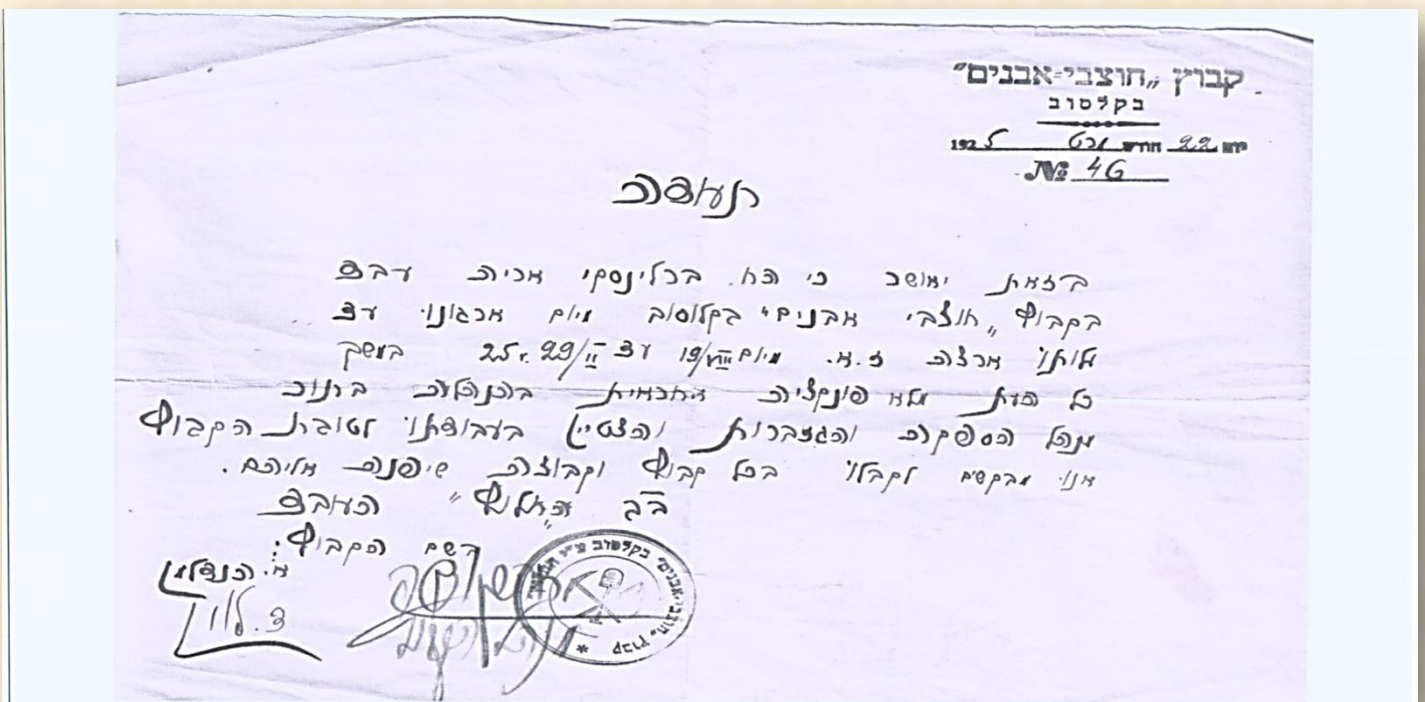 קבוץ „חוצבי-אבנים"
בקלסוב
יום 22 חודש מרט 1925
№ 46
תעודה
בזאת יאושר כי הח. ברלינסקי אריה עבד
בקבוץ „חוצבי אבנים" בקלוסוב מיום ארגונו עד
עלותו ארצה ז.א. מיום 19/VIII עד 29/II 25. במשך
כל העת מלא פונקציה אחראית בהנהלה בתור
מנהל הספקה והגזברות והצטיין בעבודתו לטובת הקבוץ
אנו מבקשים לקבלו בכל קבוץ וקבוצה שיפנה אליהם.
בב' „החלוץ" העובד
בשם הקבוץ:
קבוץ „חוצבי-אבנים" בקלסוב ע"י